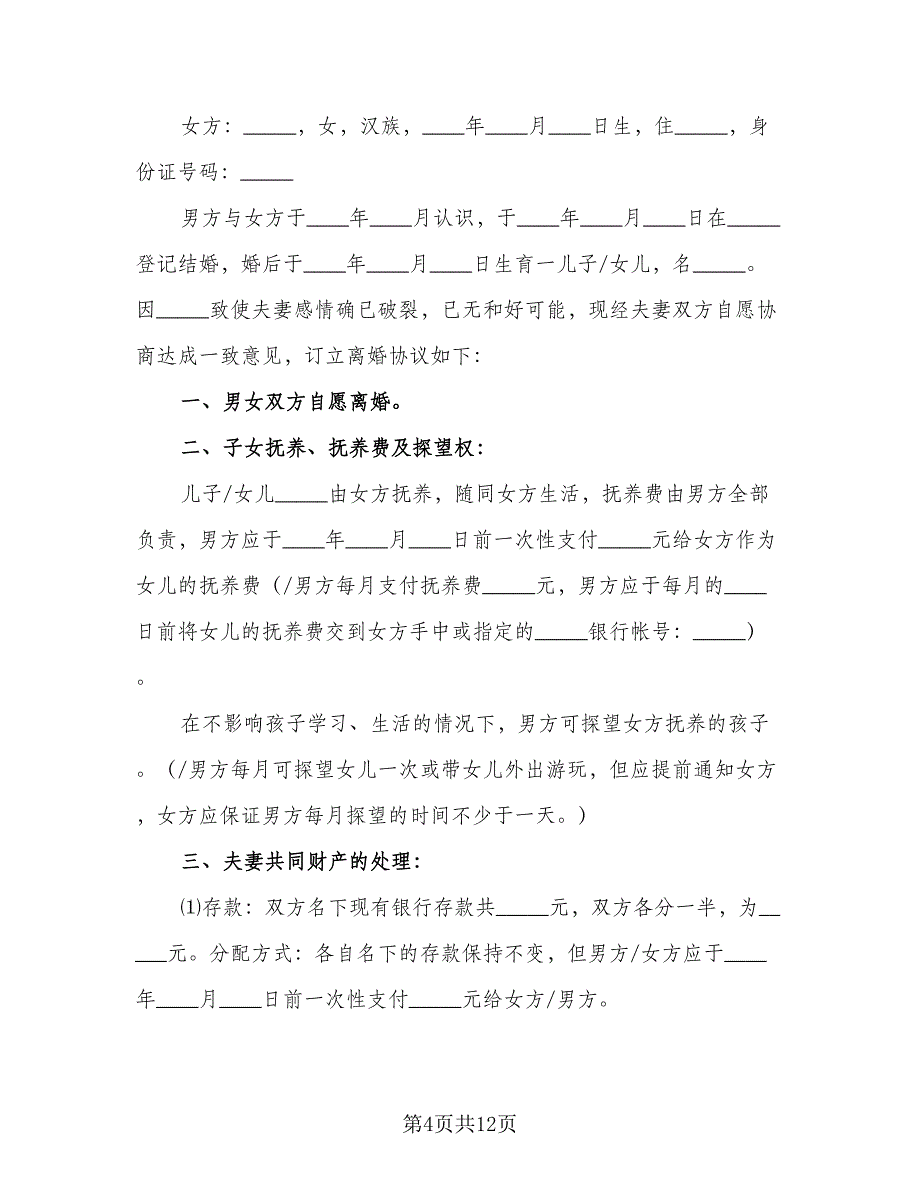 女方：_____，女，汉族，____年____月____日生，住_____，身
份证号码：_____
男方与女方于____年____月认识，于____年____月____日在_____
登记结婚，婚后于____年____月____日生育一儿子/女儿，名_____。
因_____致使夫妻感情确已破裂，已无和好可能，现经夫妻双方自愿协
商达成一致意见，订立离婚协议如下：
一、男女双方自愿离婚。
二、子女抚养、抚养费及探望权：
儿子/女儿_____由女方抚养，随同女方生活，抚养费由男方全部
负责，男方应于____年____月____日前一次性支付_____元给女方作为
女儿的抚养费（/男方每月支付抚养费_____元，男方应于每月的____
日前将女儿的抚养费交到女方手中或指定的_____银行帐号：_____)
。
在不影响孩子学习、生活的情况下，男方可探望女方抚养的孩子
。（/男方每月可探望女儿一次或带女儿外出游玩，但应提前通知女方
，女方应保证男方每月探望的时间不少于一天。）
三、夫妻共同财产的处理：
⑴存款：双方名下现有银行存款共_____元，双方各分一半，为__
___元。分配方式：各自名下的存款保持不变，但男方/女方应于____
年____月____日前一次性支付_____元给女方/男方。
第4页共12页